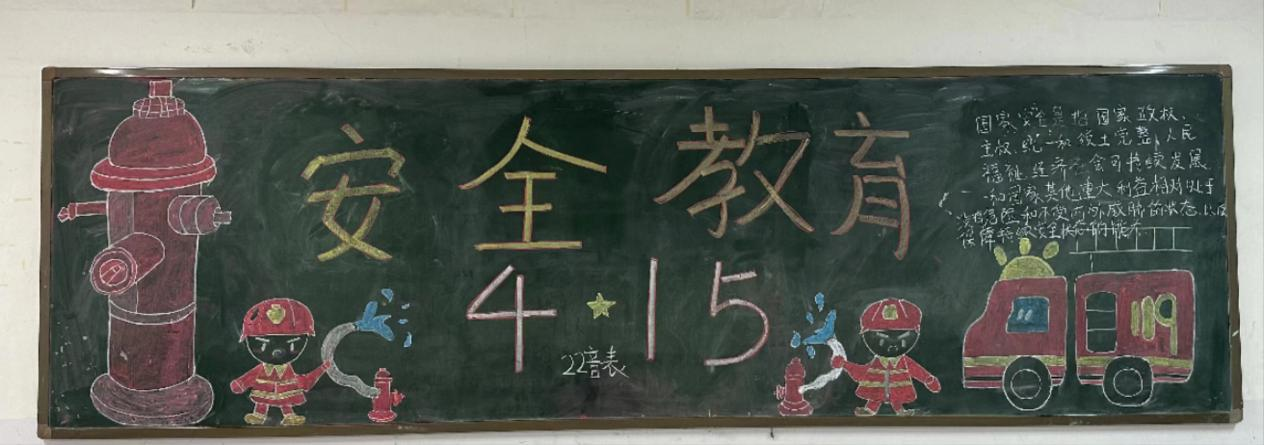 安全教育
4·15
22音表
国家安全是指国家政权、
主权、统一和领土完整、人民
福祉、经济社会可持续发展
和国家其他重大利益相对处于
没有危险和不受内外威胁的状态,以及
保障持续安全状态的能力
119